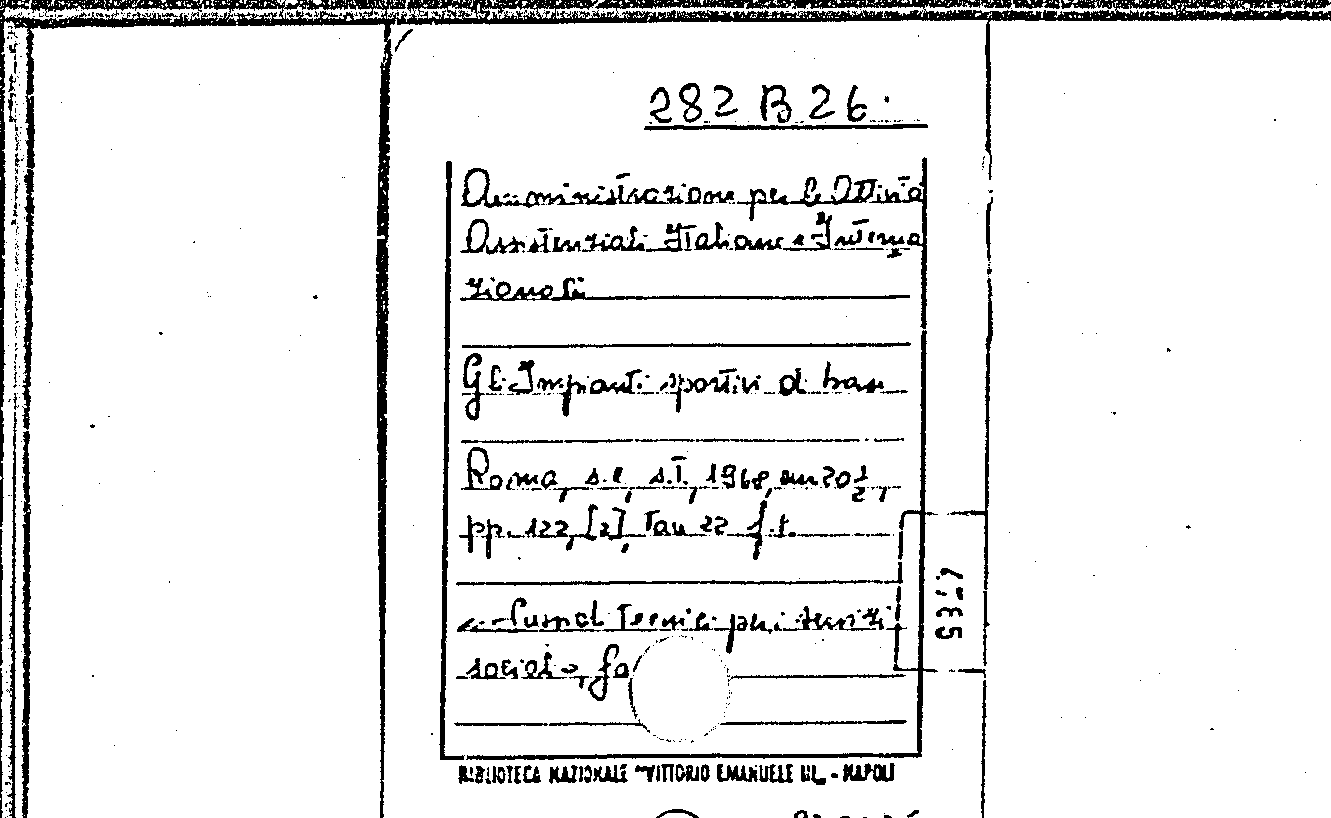 282 B 26.
Amministrazione per le Attività
Assistenziali Italiane e Interna
zionali
Gli Impianti sportivi di base
Roma, s.e., s.t., 1968, cm 20½,
pp. 122, [2], Tav 22 f.t.
«Sussidi Tecnici per i servizi
sociali», fa
BIBLIOTECA NAZIONALE "VITTORIO EMANUELE III„ - NAPOLI